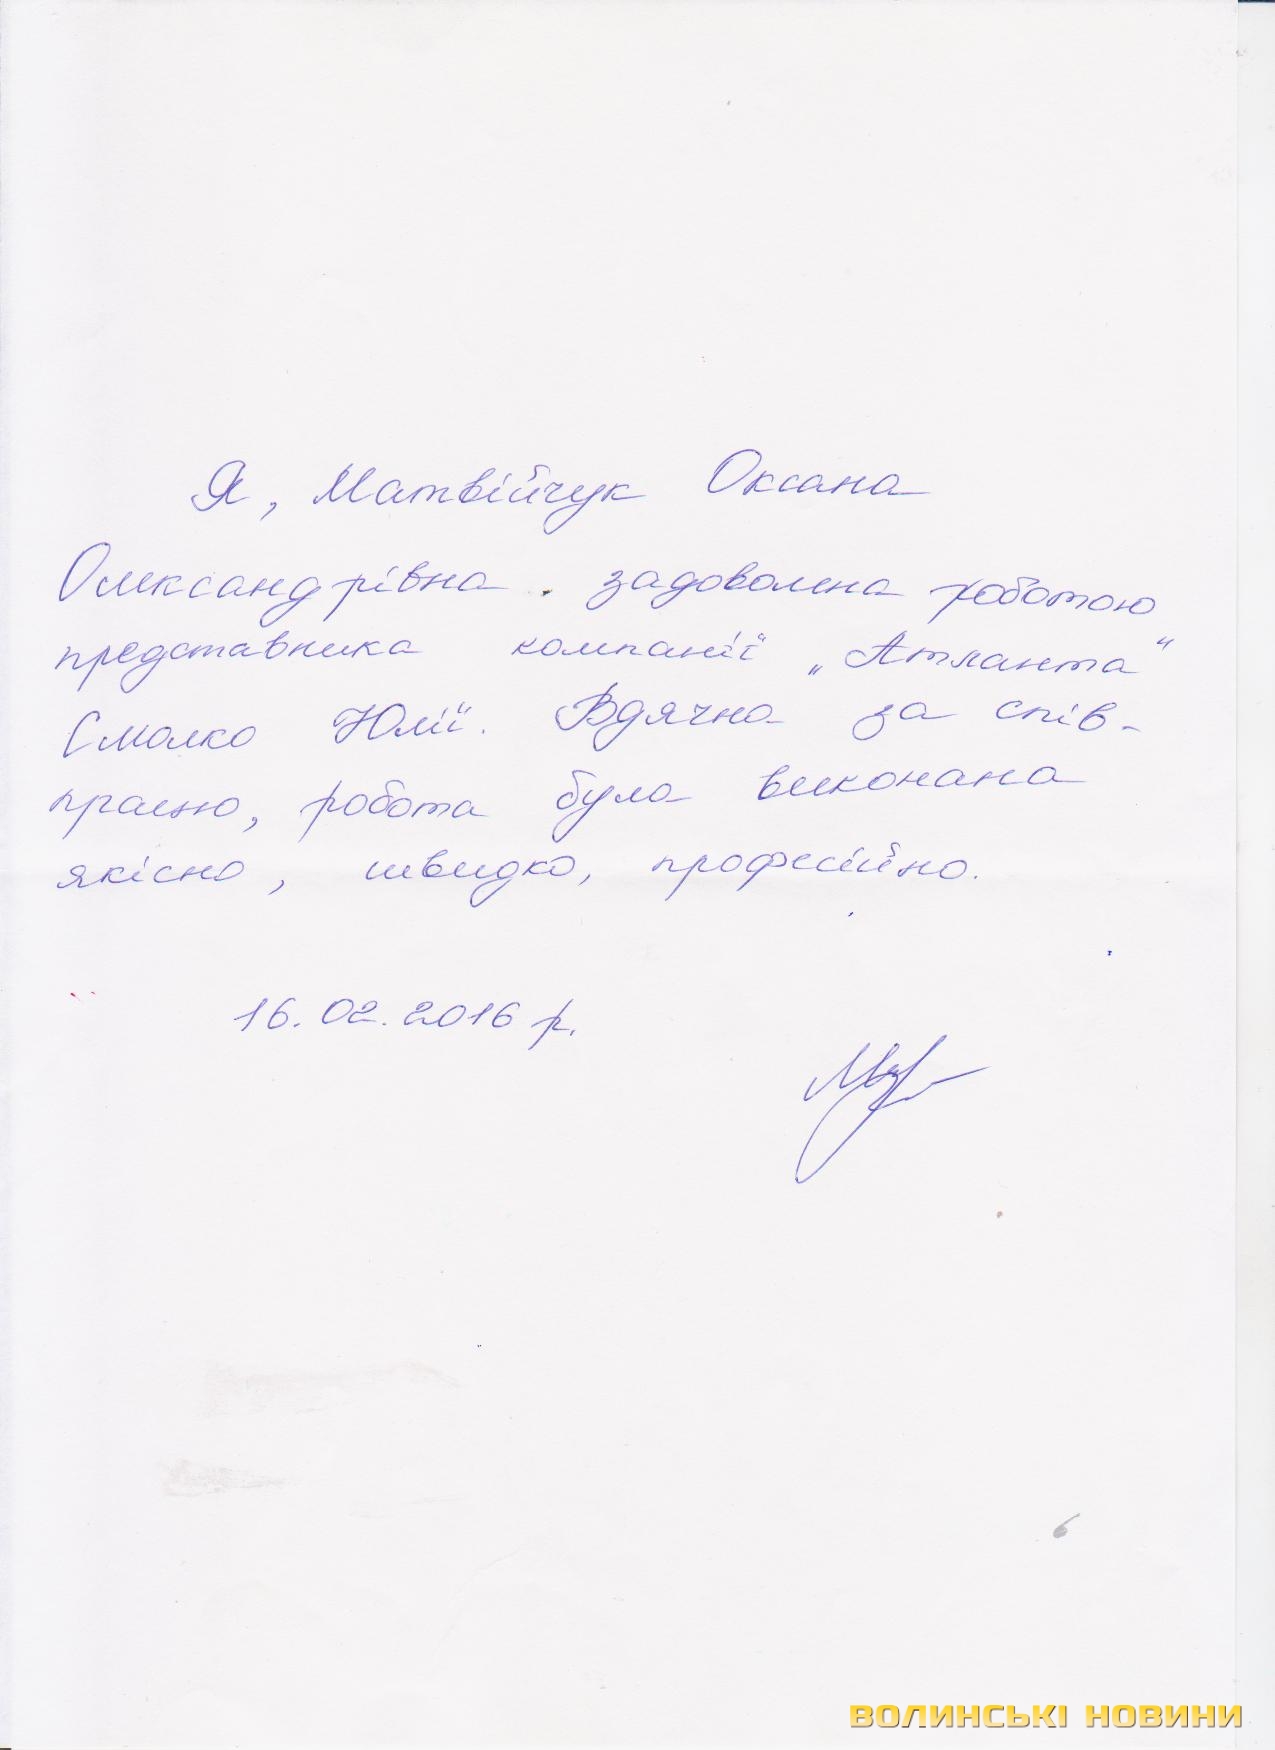 Я, Матвійчук Оксана
Олександрівна, задоволена роботою
представника компанії „Атланта“
Смолко Юлії. Вдячна за спів-
працю, робота була виконана
якісно, швидко, професійно.
16.02.2016 р.
6
ВОЛИНСЬКІ НОВИНИ